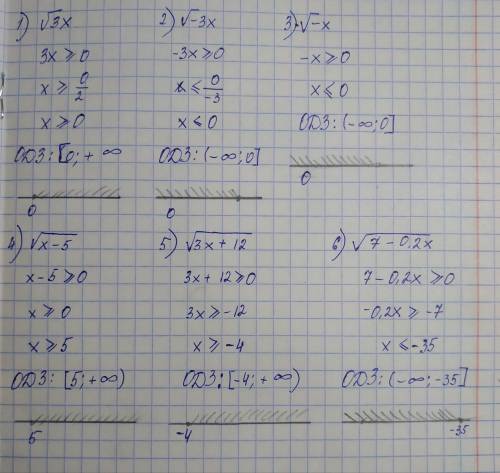 1) √3x
3x ≥ 0
x ≥ 0/2
x ≥ 0
ОДЗ: [0; + ∞
0
2) √-3x
-3x ≥ 0
x ≤ 0/-3
x ≤ 0
ОДЗ: (-∞; 0]
0
3) √-x
-x ≥ 0
x ≤ 0
ОДЗ: (-∞; 0]
0
4) √x-5
x-5 ≥ 0
x ≥ 0
x ≥ 5
ОДЗ: [5; +∞)
5
5) √3x + 12
3x + 12 ≥ 0
3x ≥ -12
x ≥ -4
ОДЗ: [-4; +∞)
-4
6) √7 - 0,2x
7 - 0,2x ≥ 0
-0,2x ≥ -7
x ≤ -35
ОДЗ: (-∞; -35]
-35